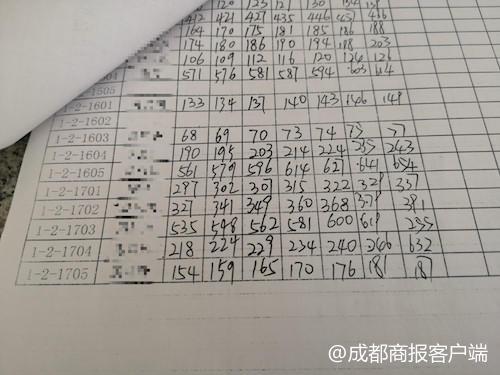 120 123 121 130 134 138
412 421 427 435 446
164 170 175 181 185 186 188
174 180 186 190 194 188 203
106 109 112 116 120 126
571 576 581 587 594 603
1-2-1601 133 134 137 140 143 146 149
1-2-1602
1-2-1603 68 69 70 73 74 75 77
1-2-1604 190 195 203 214 224 235 243
1-2-1605 561 579 596 614 627 641 654
1-2-1701 297 302 307 315 322 328 337
1-2-1702 327 341 349 360 368 378
1-2-1703 535 548 562 581 600 618
1-2-1704 218 224 229 234 240 632
1-2-1705 154 159 165 170 176 181 187
@成都商报客户端